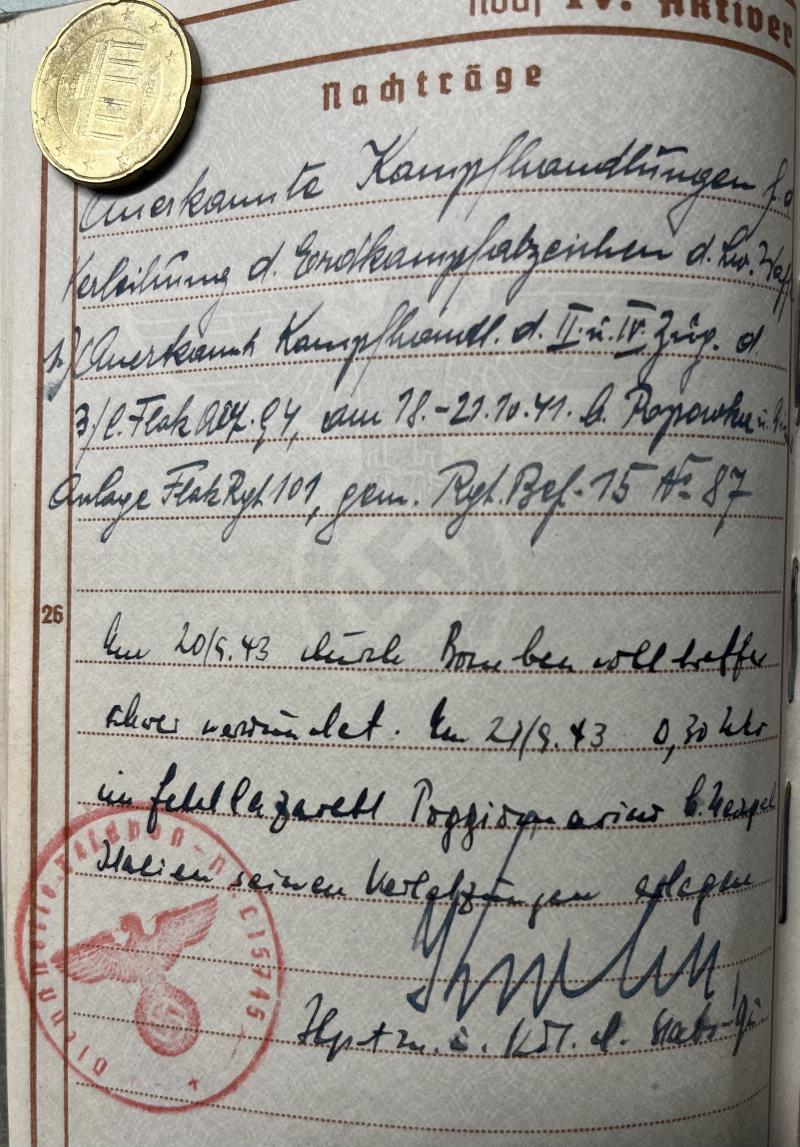 Noch IV. Aktiver
Nachträge
Anerkannte Kampfhandlungen f. d
Verleihung d. Erdkampfabzeichen d. Lw.
1.) Anerkannt Kampfhandl. d. II. u. IV. Zug. d
3/l. Flak Abt. 94, am 18.-21.10.41. b. Popowka u.
Anlage Flak Rgt 101, gem. Rgt. Bef. 15 No 87
26
Am 20/9.43 durch Bombenvolltreffer
schwer verwundet. Am 21/9.43 0,30 Uhr
im Feldlazarett Poggiomarino b. Neapel
Italien seinen Verletzungen erlegen
Hptm. u. d.
Dienststelle Feldpost-Nr. L 15745